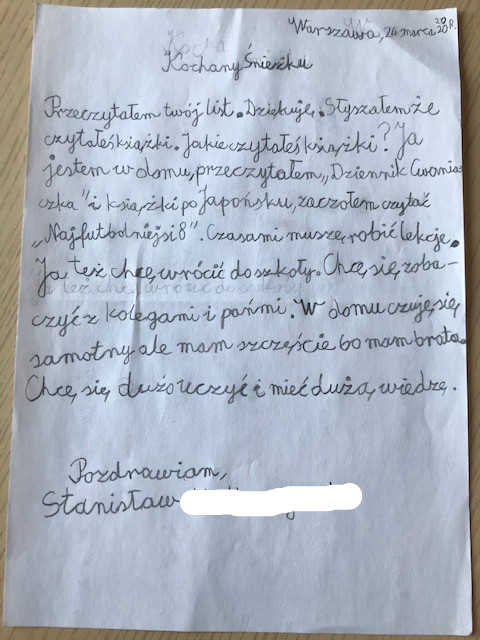 Warszawa, 24 marca 2020 R.
Kocha
Kochany Śnieżku
Przeczytałem twój list. Dziękuję. Słyszałem że
czytałeś książki. Jakie czytałeś książki? Ja
jestem w domu, przeczytałem „Dziennik Cwania
czka" i książki po Japońsku, zaczołem czytać
„Najfutbolniejsi 8". Czasami muszę robić lekcje.
Ja też chcę wrócić do szkoły. Chcę się zoba-
czyć z kolegami i pańmi. W domu czuję się
samotny ale mam szczęście bo mam brata.
Chcę się dużo uczyć i mieć dużą wiedzę.
Pozdrawiam,
Stanisław